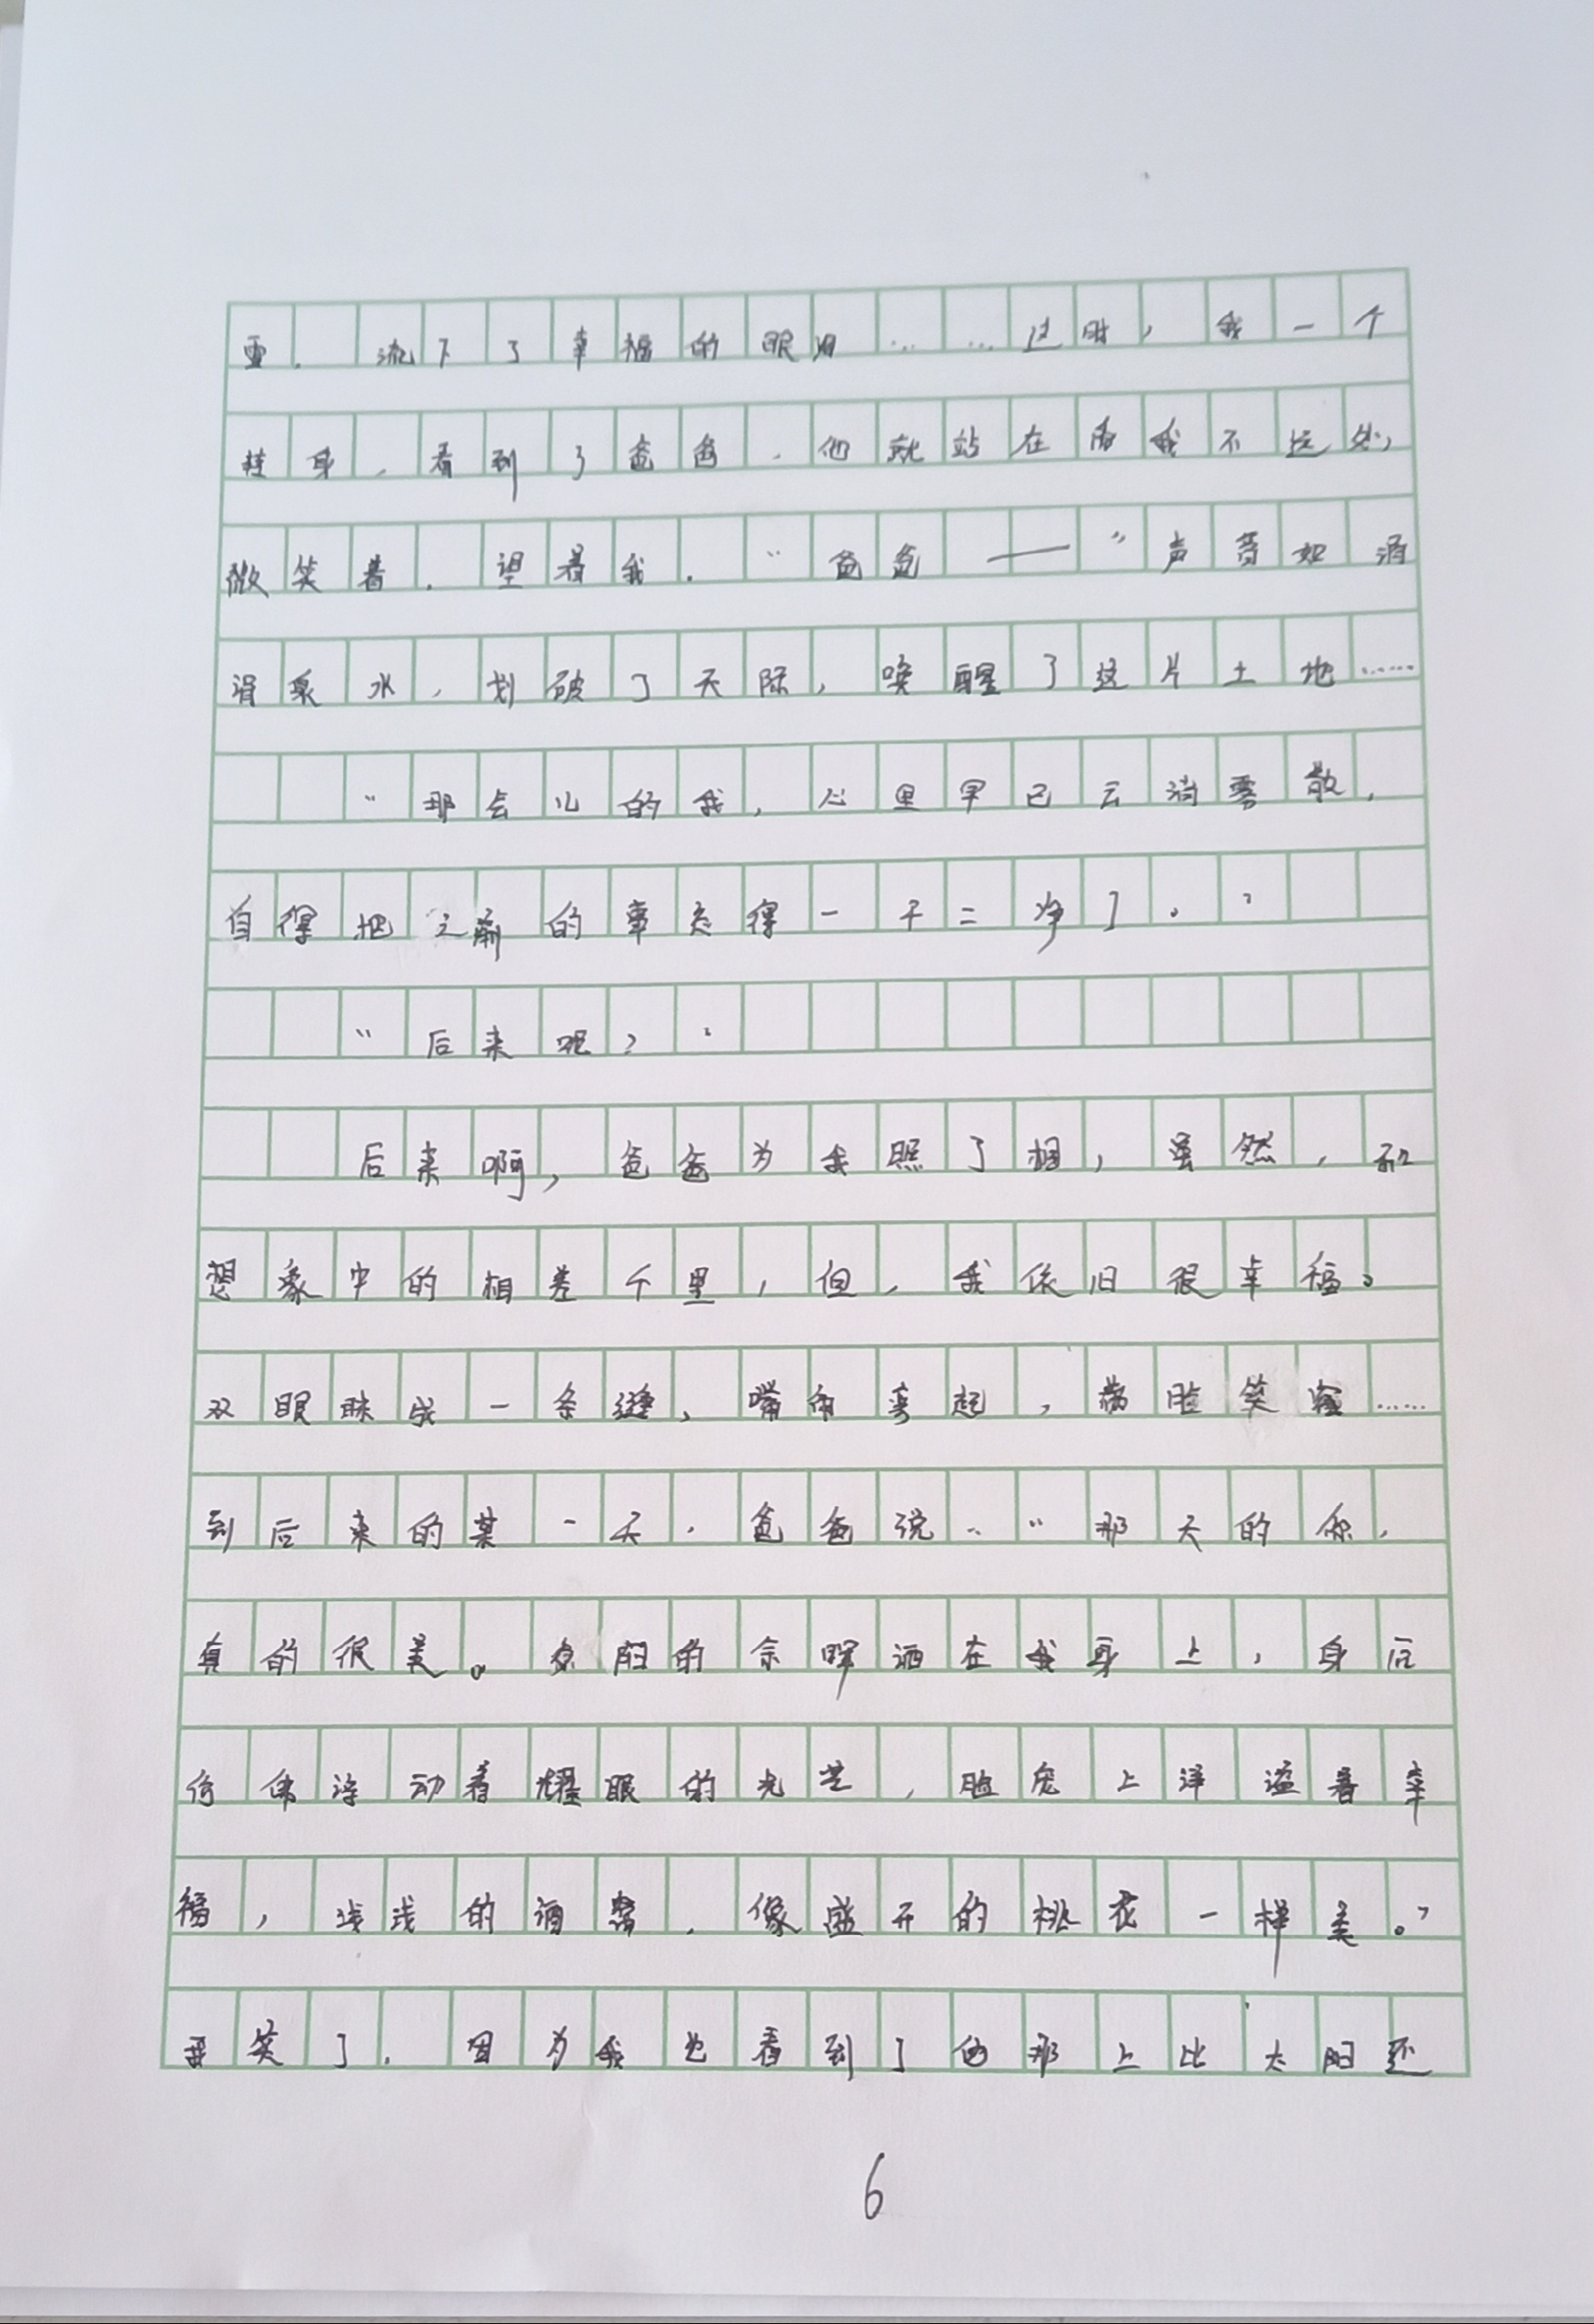 亚，流下了幸福的眼泪……这时，我一个
转身，看到了爸爸，他就站在离我不远处，
微笑着，望着我。“爸爸——”声音如涓
涓泉水，划破了天际，唤醒了这片土地……
“那会儿的我，心里早已云消雾散，
自得把之前的事忘得一干二净了。”
“后来呢？”
后来啊，爸爸为我照了相，虽然，和
想象中的相差千里，但，我依旧很幸福。
双眼眯成一条缝，嘴角弯起，满脸笑容……
到后来的某一天，爸爸说：“那天的你，
真的很美。夕阳的余晖洒在我身上，身后
仿佛浮动着耀眼的光芒，脸庞上洋溢着幸
福，浅浅的酒窝，像盛开的桃花一样美。”
我笑了，因为我也看到了他那上比太阳还
6